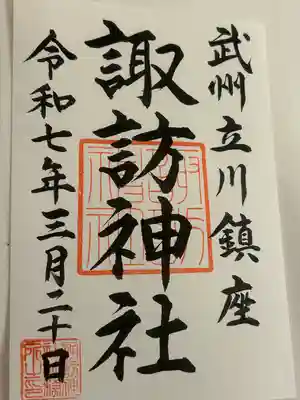 武州立川鎮座
諏訪神社
令和七年三月二十日